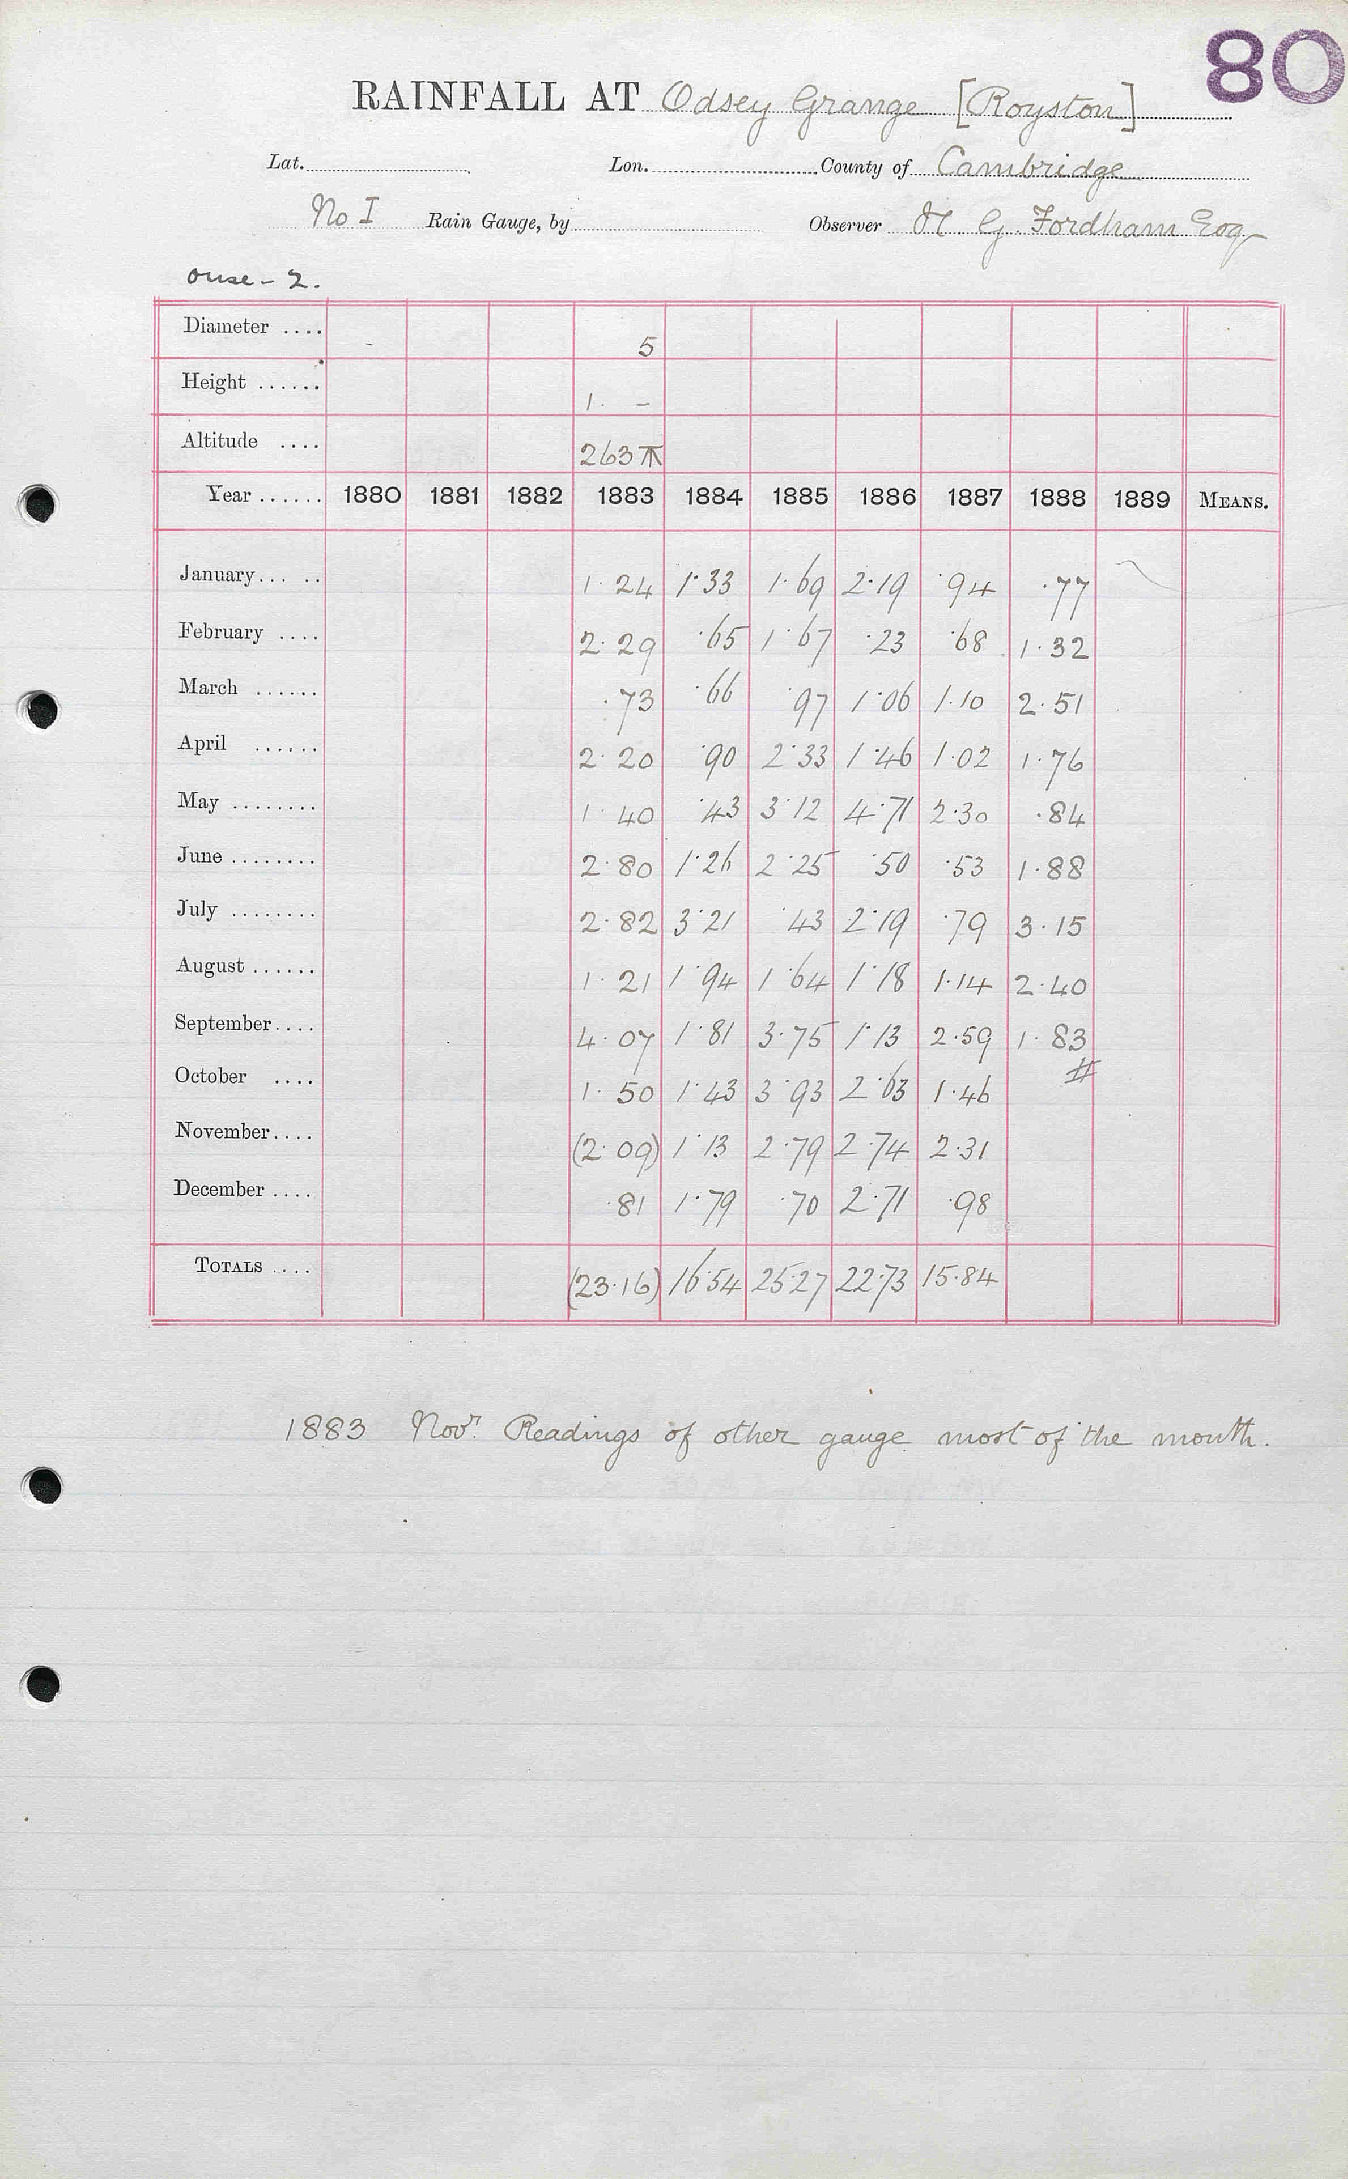 80
RAINFALL AT Odsey Grange [Royston]
Lat. Lon. County of Cambridge
No I Rain Gauge, by Observer H G. Fordham Esq
ouse - 2.
Diameter .... 5
Height ...... 1. -
Altitude .... 263
Year ...... 1880 1881 1882 1883 1884 1885 1886 1887 1888 1889 MEANS.
January... .. 1.24 1.33 1.69 2.19 .94 .77
February .... 2.29 .65 1.67 .23 .68 1.32
March ...... .73 .66 .97 1.06 1.10 2.51
April ...... 2.20 .90 2.33 1.46 1.02 1.76
May ........ 1.40 .43 3.12 4.71 2.30 .84
June ........ 2.80 1.26 2.25 .50 .53 1.88
July ........ 2.82 3.21 .43 2.19 .79 3.15
August ...... 1.21 1.94 1.64 1.18 1.14 2.40
September.... 4.07 1.81 3.75 1.13 2.59 1.83
October .... 1.50 1.43 3.93 2.63 1.46 #
November.... (2.09) 1.13 2.79 2.74 2.31
December .... .81 1.79 .70 2.71 .98
TOTALS .... (23.16) 16.54 25.27 22.73 15.84
1883 Novr. Readings of other gauge most of the month.